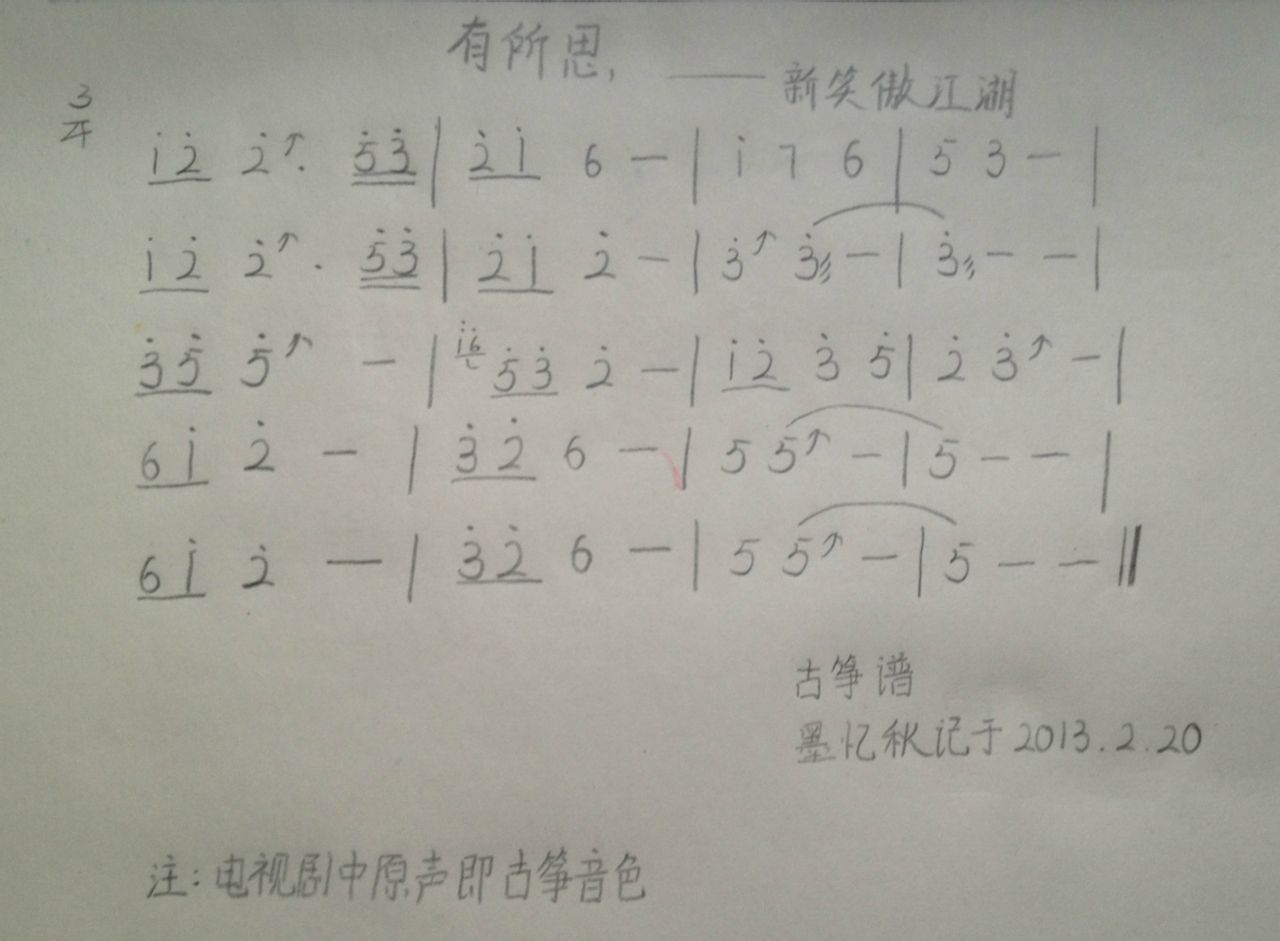 有所思,
——新笑傲江湖
3/4
i̇ 2̇ 2̇↗. 5̇ 3̇ | 2̇ i̇ 6 — | i̇ 7 6 | 5 3 — |
i̇ 2̇ 2̇↗. 5̇ 3̇ | 2̇ i̇ 2̇ — | 3̇↗ 3̇⫽ — | 3̇⫽ — — |
3̇ 5̇ 5̇↗ — | i̇6̇ 5̇ 3̇ 2̇ — | i̇ 2̇ 3̇ 5̇ | 2̇ 3̇↗ — |
6 i̇ 2̇ — | 3̇ 2̇ 6 — | 5 5↗ — | 5 — — |
6 i̇ 2̇ — | 3̇ 2̇ 6 — | 5 5↗ — | 5 — — ||
古筝谱
墨忆秋记于2013.2.20
注:电视剧中原声即古筝音色